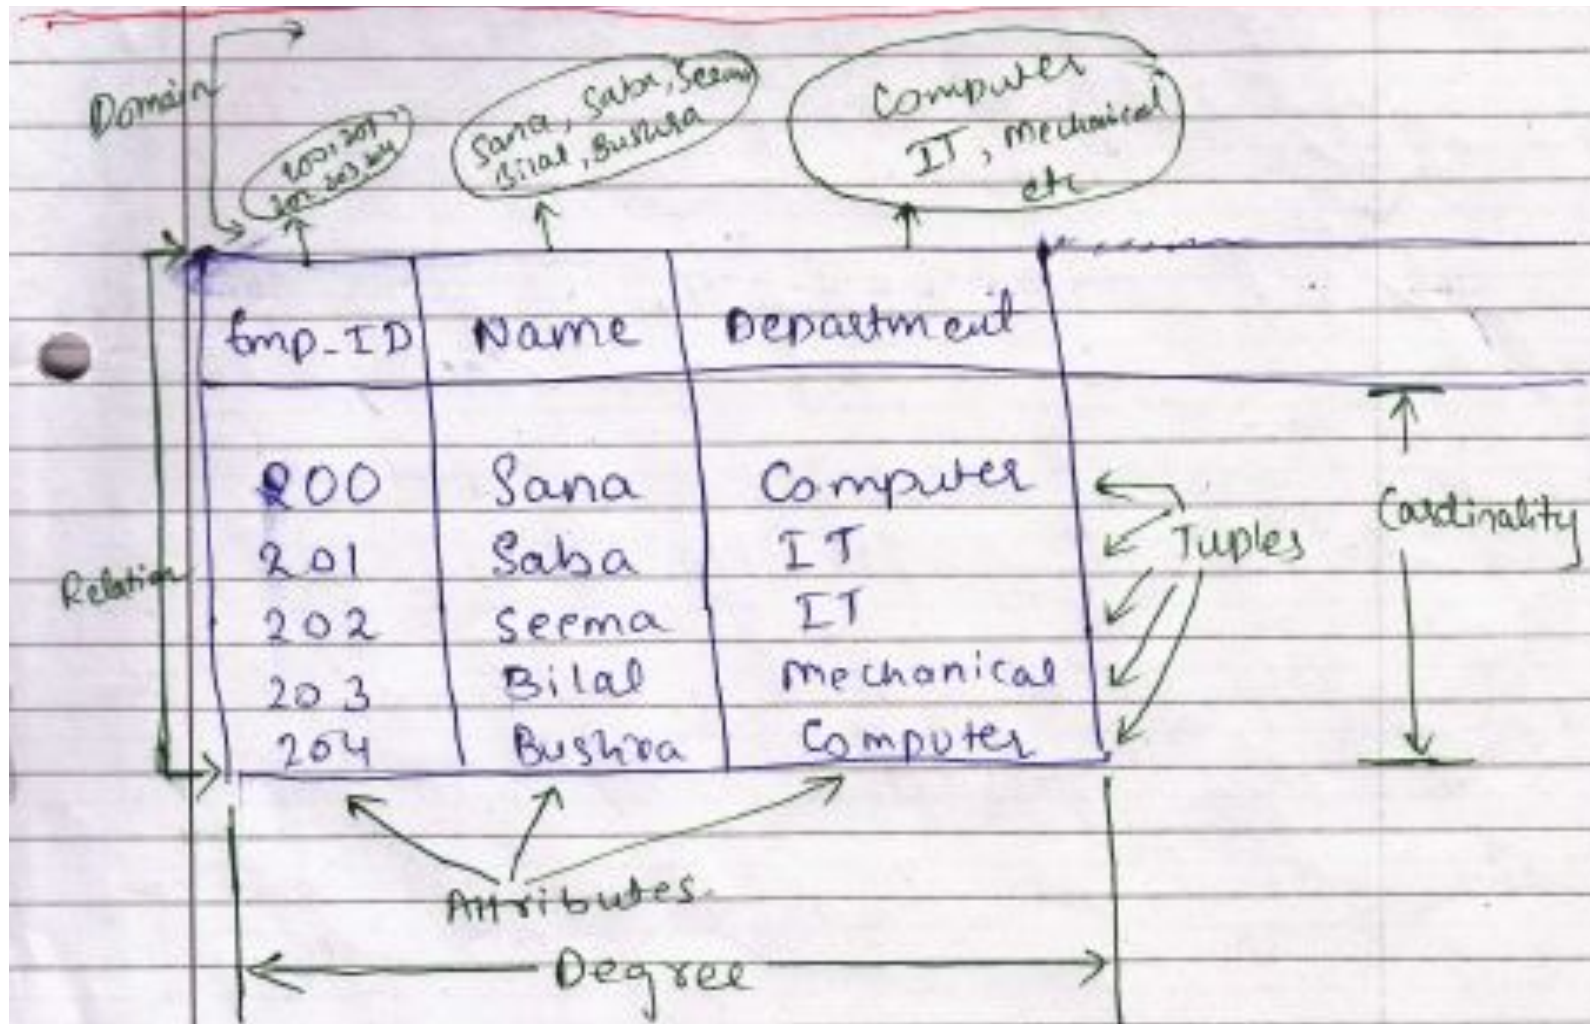 Domain
200, 201
202, 203, 204
Sana, Saba, Seema
Bilal, Bushra
Computer
IT, Mechanical
etc
Emp_ID Name Department
200 Sana Computer
201 Saba IT
202 Seema IT
203 Bilal Mechanical
204 Bushra Computer
Relation
Tuples
Cardinality
Attributes
Degree